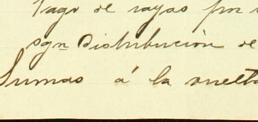 Pago de rayas por
sgn Distribución de
Sumas á la vuelta